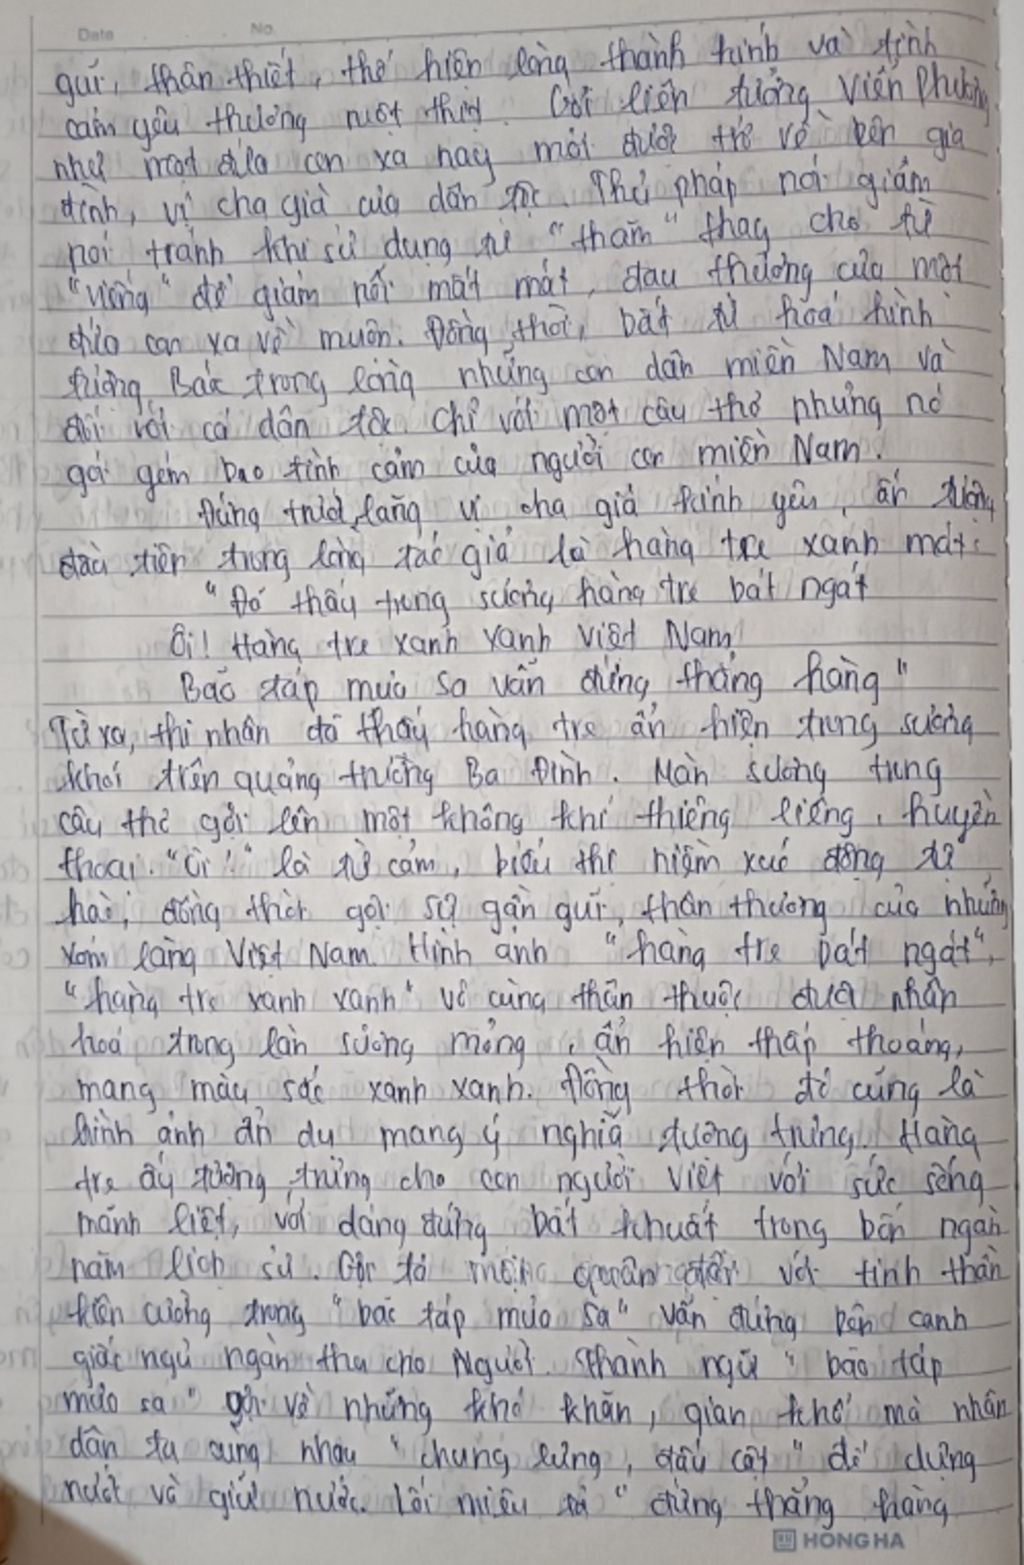 Date No.
gũi, thân thiết, thể hiện lòng thành kính và tình
cảm yêu thương ruột thịt. Gợi liên tưởng Viễn Phương
như một đứa con xa nay mới được trở về bên gia
đình, vị cha già của dân tộc. Thủ pháp nói giảm
nói tránh khi sử dụng từ "thăm" thay cho từ
"viếng" để giảm nỗi mất mát, đau thương của một
đứa con xa về muộn. Đồng thời, bất tử hoá hình
tượng Bác trong lòng những con dân miền Nam và
đối với cả dân tộc. Chỉ với một câu thơ nhưng nó
gói gém bao tình cảm của người con miền Nam.
Đứng trước lăng vị cha già kính yêu, ấn tượng
đầu tiên trong lòng tác giả là hàng tre xanh mát:
"Đó thấy trong sương hàng tre bát ngát
Ôi! Hàng tre xanh xanh Việt Nam
Bão táp mưa sa vẫn đứng thẳng hàng"
Từ xa, thi nhân đã thấy hàng tre ẩn hiện trong sương
khói trên quảng trường Ba Đình. Màn sương trong
câu thơ gợi lên một không khí thiêng liêng, huyền
thoại. "Ôi!" là từ cảm, biểu thị niềm xúc động tự
hào, đồng thời gợi sự gần gũi, thân thương của những
xóm làng Việt Nam. Hình ảnh "hàng tre bát ngát",
"hàng tre xanh xanh" vô cùng thân thuộc được nhân
hoá trong làn sương mỏng, ẩn hiện thấp thoáng,
mang màu sắc xanh xanh. Đồng thời đó cũng là
hình ảnh ẩn dụ mang ý nghĩa tượng trưng. Hàng
tre ấy tượng trưng cho con người Việt với sức sống
mãnh liệt, với dáng đứng bất khuất trong bốn ngàn
năm lịch sử. với tinh thần
kiên cường trong "bão táp mưa sa" vẫn đứng bên cạnh
giấc ngủ ngàn thu cho Người. Thành ngữ "bão táp
mưa sa" gợi về những khó khăn, gian khổ mà nhân
dân ta cùng nhau "chung lưng, đấu cật" để dựng
nước và giữ nước. Lối miêu tả "đứng thẳng hàng
HONG HA